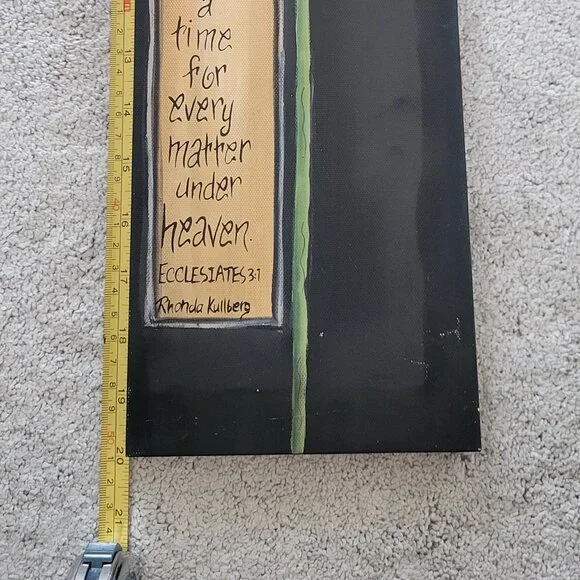 a
time
for
every
matter
under
heaven.
ECCLESIATES 3:1
Rhonda Kullberg
13
14
15
40
16
17
18
19
50
20
21